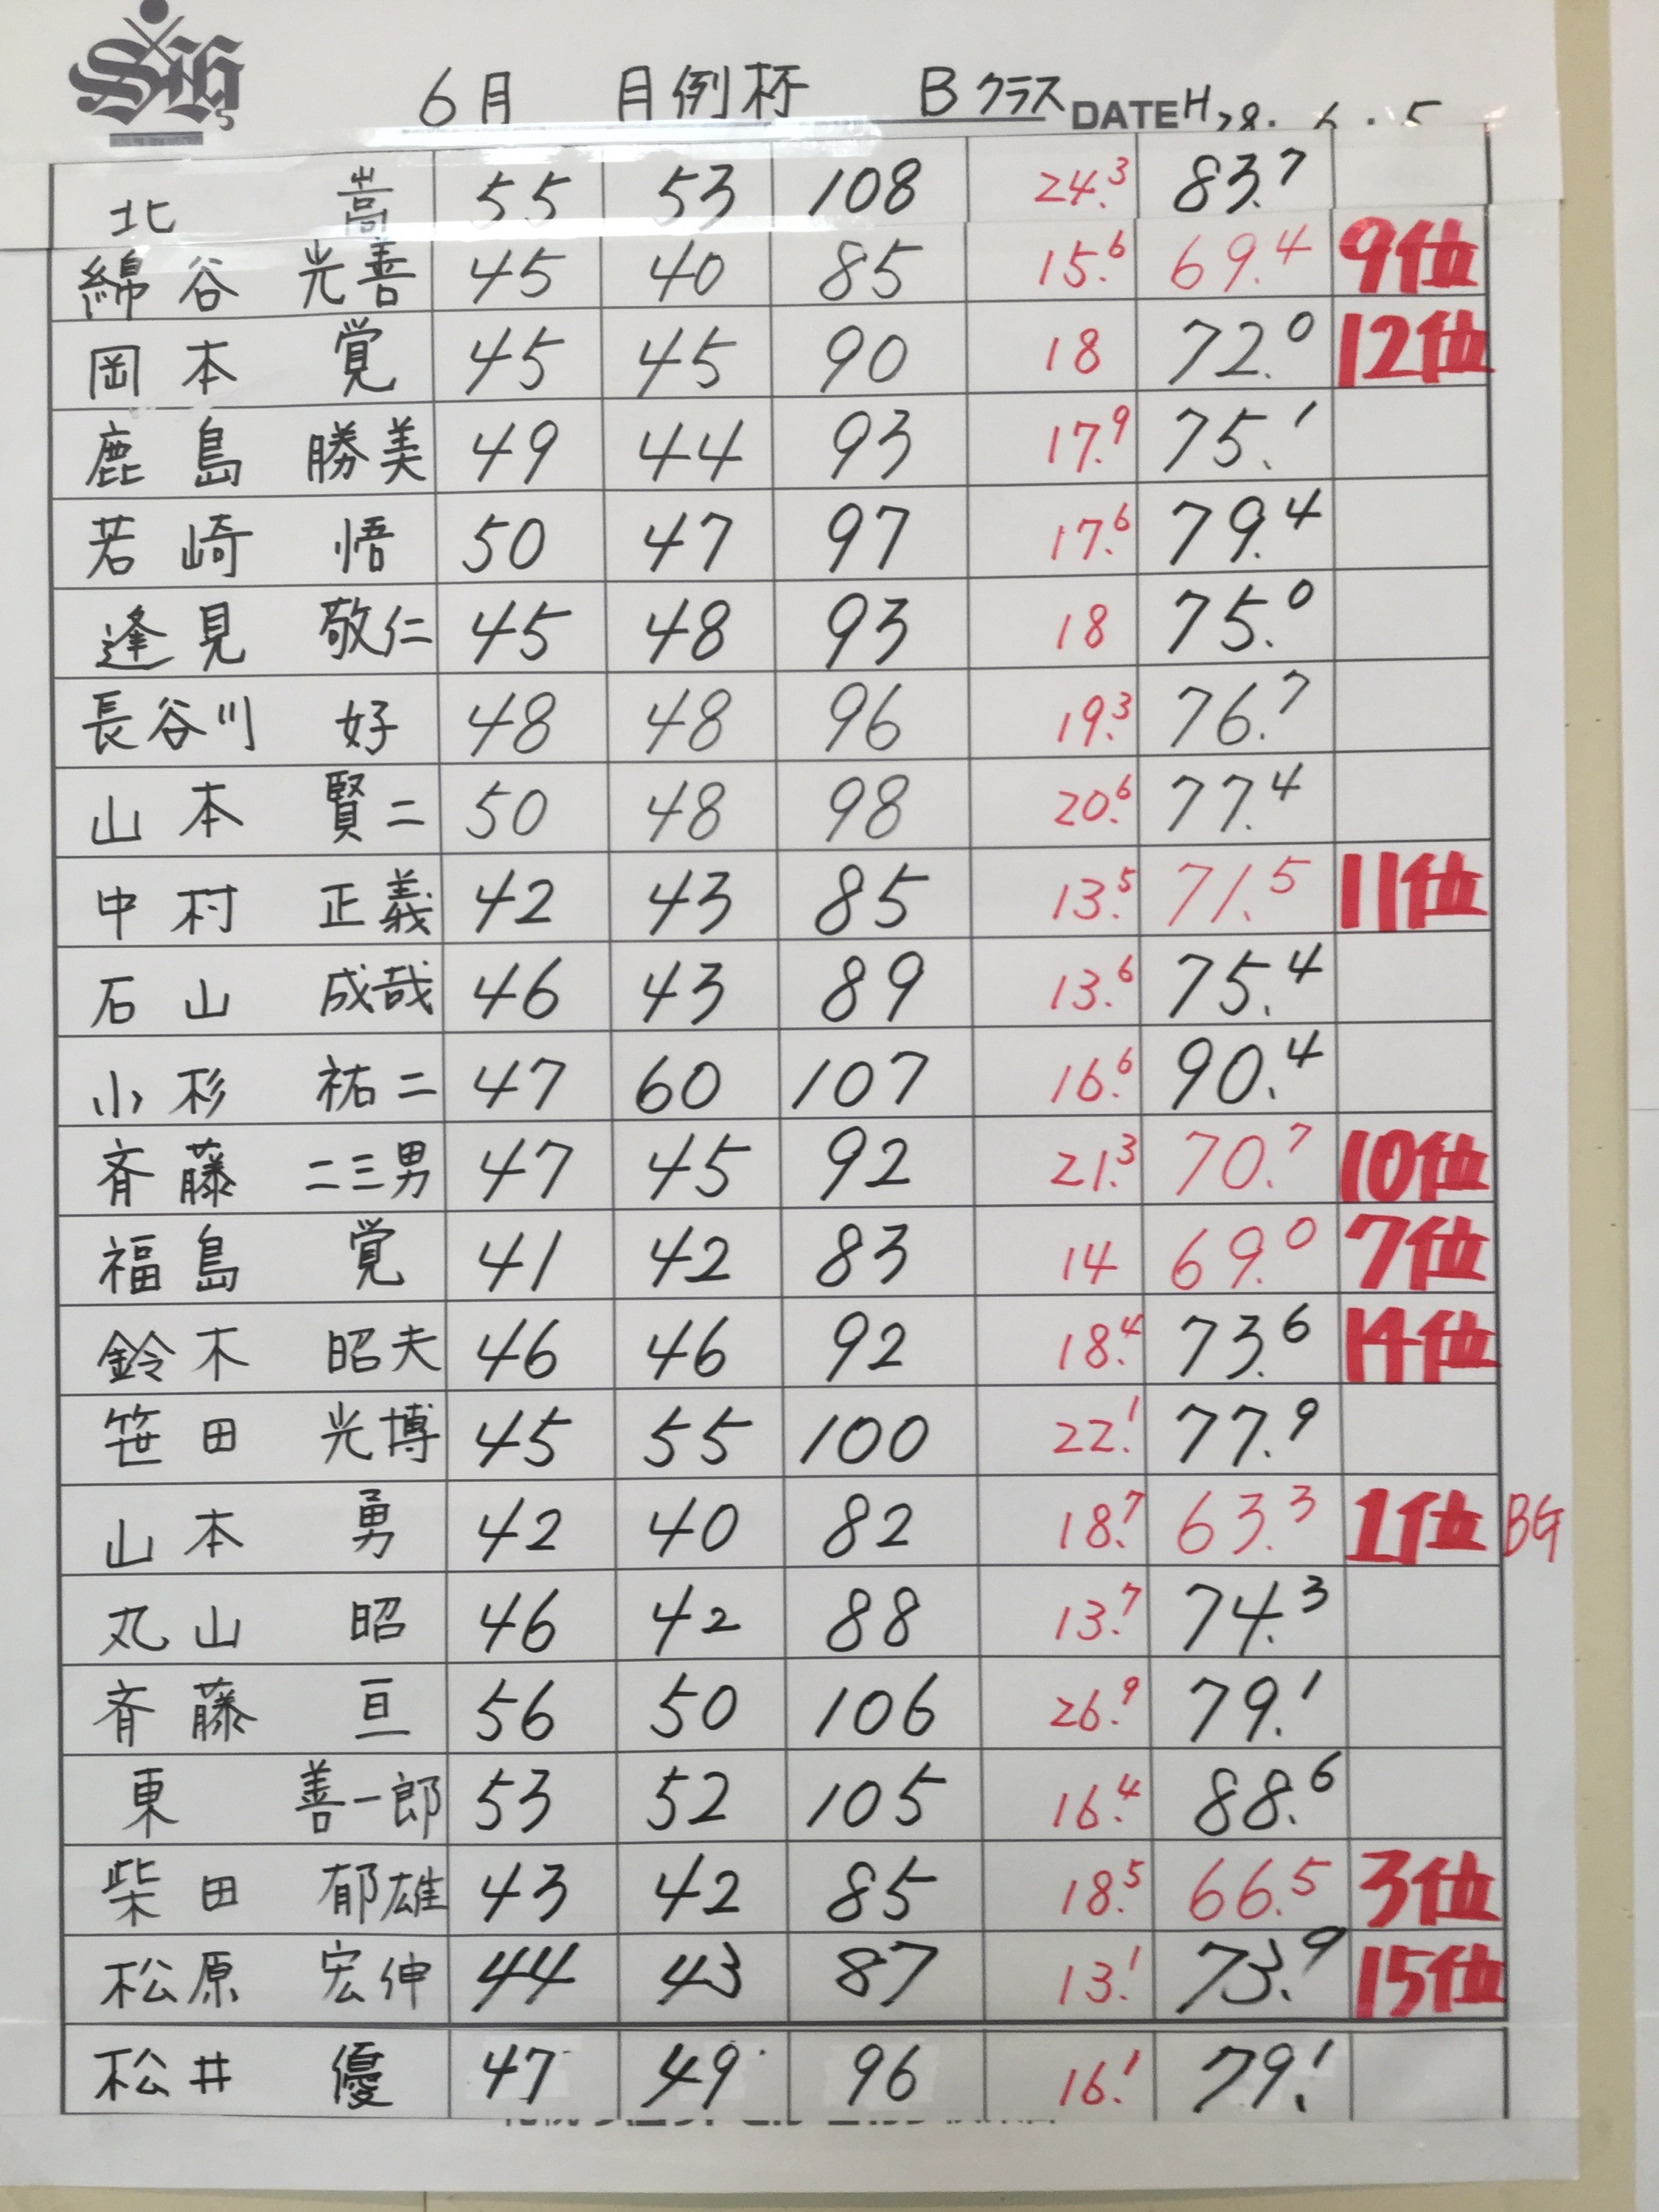 SH
6月 月例杯 Bクラス DATE H28.6.5
北 嵩 55 53 108 24.3 83.7
綿谷 光善 45 40 85 15.6 69.4 9位
岡本 覚 45 45 90 18 72.0 12位
鹿島 勝美 49 44 93 17.9 75.1
若崎 悟 50 47 97 17.6 79.4
逢見 敬仁 45 48 93 18 75.0
長谷川 好 48 48 96 19.3 76.7
山本 賢二 50 48 98 20.6 77.4
中村 正義 42 43 85 13.5 71.5 11位
石山 成哉 46 43 89 13.6 75.4
小杉 祐二 47 60 107 16.6 90.4
斉藤 二三男 47 45 92 21.3 70.7 10位
福島 覚 41 42 83 14 69.0 7位
鈴木 昭夫 46 46 92 18.4 73.6 14位
笹田 光博 45 55 100 22.1 77.9
山本 勇 42 40 82 18.7 63.3 1位 BG
丸山 昭 46 42 88 13.7 74.3
斉藤 亘 56 50 106 26.9 79.1
東 善一郎 53 52 105 16.4 88.6
柴田 郁雄 43 42 85 18.5 66.5 3位
松原 宏伸 44 43 87 13.1 73.9 15位
松井 優 47 49 96 16.1 79.1